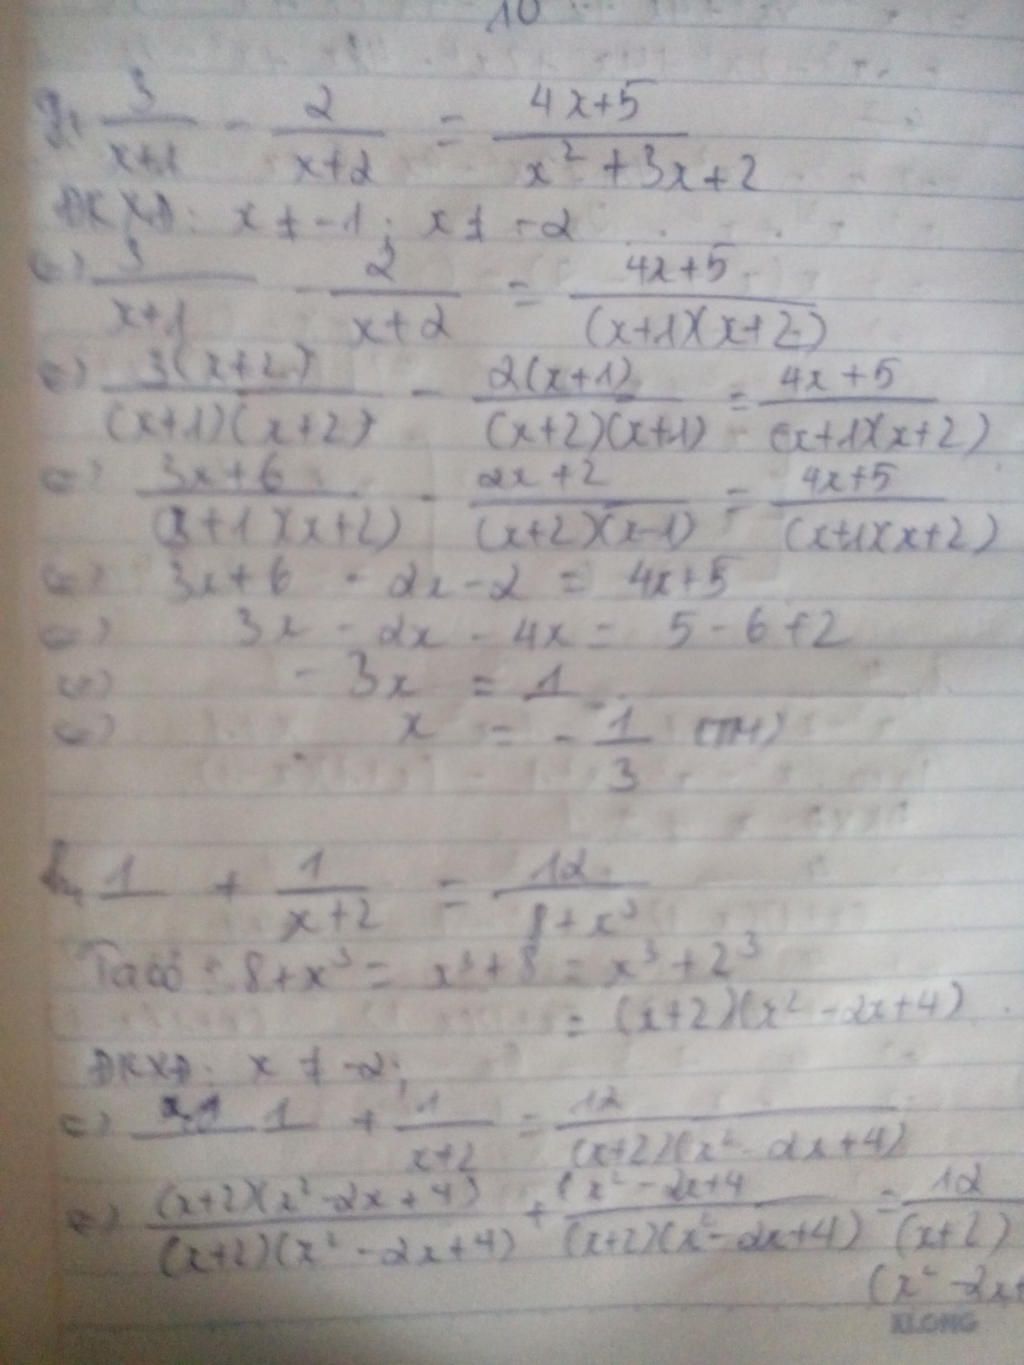 10
g, 3/(x+1) - 2/(x+2) = (4x+5)/(x² + 3x + 2)
ĐKXĐ: x ≠ -1; x ≠ -2
<=> 3/(x+1) - 2/(x+2) = (4x+5)/((x+1)(x+2))
<=> 3(x+2)/((x+1)(x+2)) - 2(x+1)/((x+2)(x+1)) = (4x+5)/((x+1)(x+2))
<=> (3x+6)/((x+1)(x+2)) - (2x+2)/((x+2)(x-1)) = (4x+5)/((x+1)(x+2))
<=> 3x+6 - 2x-2 = 4x+5
<=> 3x - 2x - 4x = 5 - 6 + 2
<=> - 3x = 1
<=> x = - 1/3 (TM)
h, 1 + 1/(x+2) = 12/(8+x³)
Ta có: 8+x³ = x³+8 = x³+2³
= (x+2)(x² -2x+4)
ĐKXĐ: x ≠ -2;
<=> 1 + 1/(x+2) = 12/((x+2)(x² - 2x+4))
<=> (x+2)(x²-2x+4)/((x+2)(x²-2x+4)) + (x²-2x+4)/((x+2)(x²-2x+4)) = 12/(x+2)
(x² -2x+
KLONG